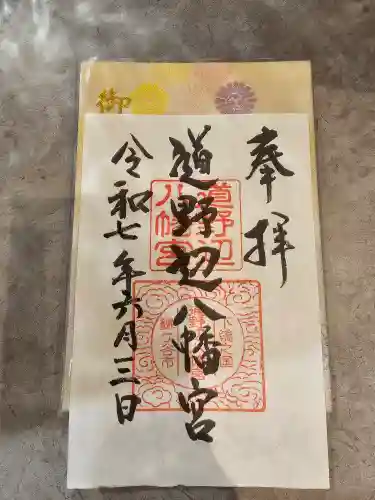 奉拝
道野辺八幡宮
令和七年六月三日
道野辺
八幡宮
御